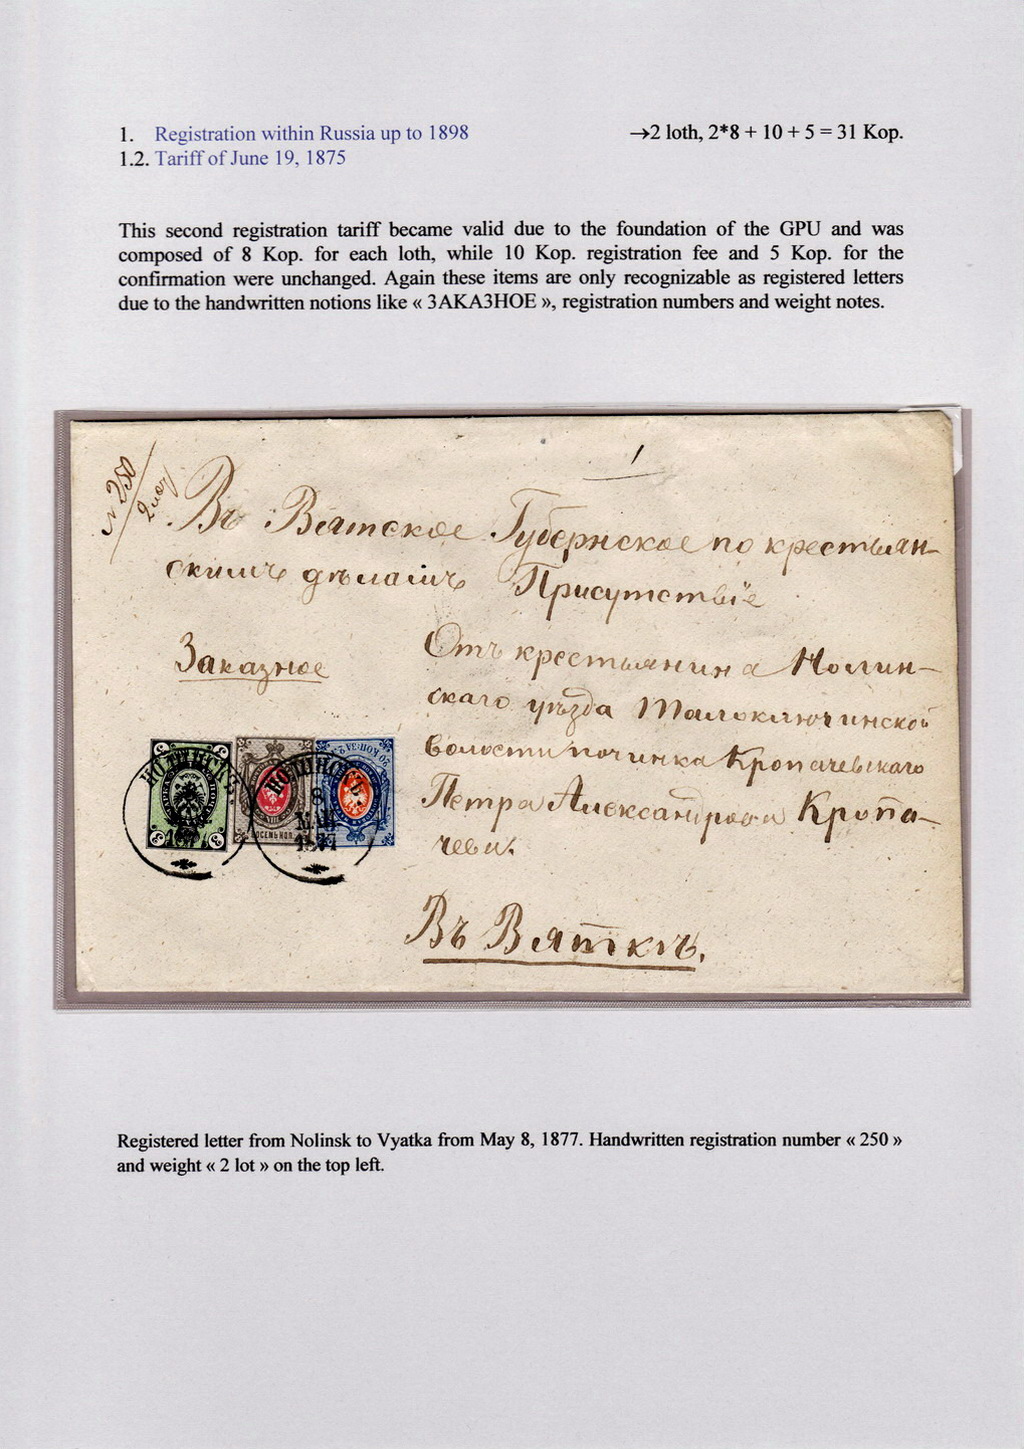 1. Registration within Russia up to 1898 →2 loth, 2*8 + 10 + 5 = 31 Kop.
1.2. Tariff of June 19, 1875
This second registration tariff became valid due to the foundation of the GPU and was
composed of 8 Kop. for each loth, while 10 Kop. registration fee and 5 Kop. for the
confirmation were unchanged. Again these items are only recognizable as registered letters
due to the handwritten notions like « ЗАКАЗНОЕ », registration numbers and weight notes.
№ 250
2 лот
Въ Вятское Губернское по крестьян-
скимъ дѣламъ Присутствіе
Заказное
Отъ крестьянина Нолин-
скаго уѣзда Малоключинской
волости починка Кропачевскаго
Петра Александрова Кропа-
чева.
НОЛИНСКЪ.
187
НОЛИНСКЪ.
8
МАЯ
1877
3
3
ВОСЕМЬ КОП.
20 КОП. ЗА
Въ Вяткѣ.
Registered letter from Nolinsk to Vyatka from May 8, 1877. Handwritten registration number « 250 »
and weight « 2 lot » on the top left.